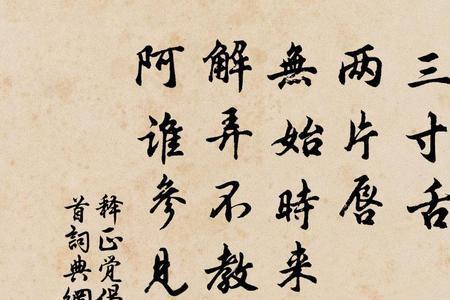 三寸舌
两片唇
無始時来
解弄不教
阿谁参見
释正觉偈
首詞典網